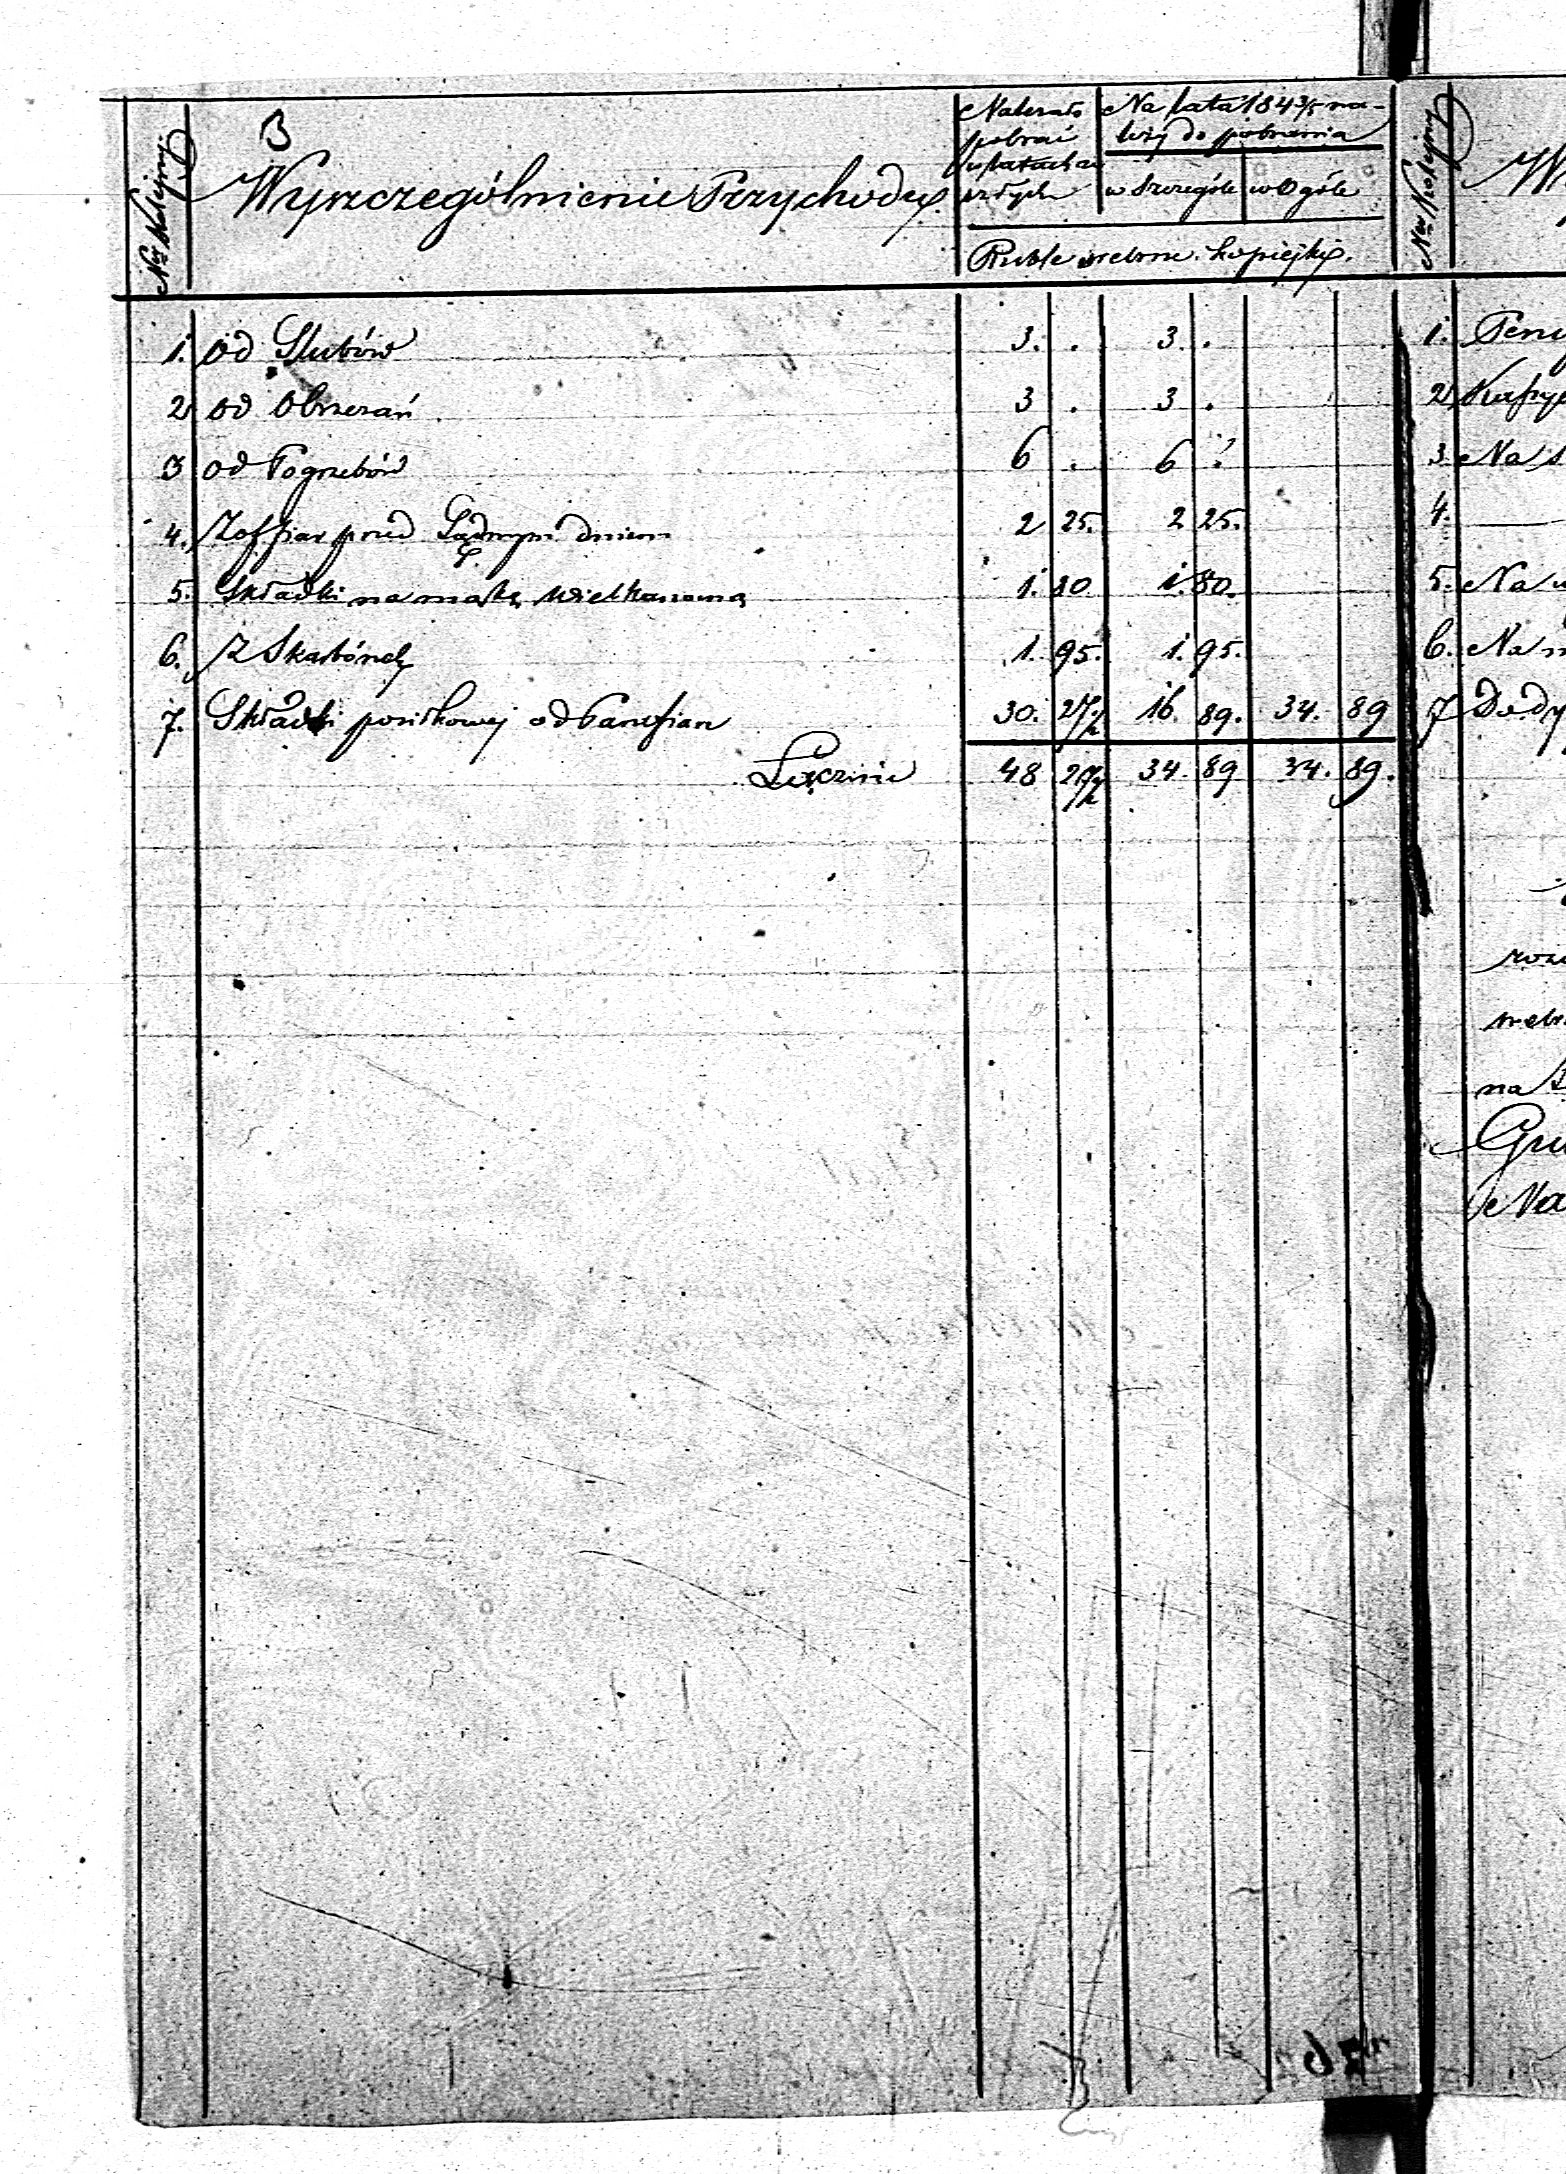 3
Ner Kolejny
Wyszczególnienie Przychodu
Należało
pobrać
w latach ze
szłych
Na lata 1843/5 na-
leży do pobrania
w Szczególe w Ogóle
Ruble srebrne kopiejki.
Ner Kolejny
1. od Slubów 3. . 3. .
2 od Obrzezań 3 . 3 .
3 od Pogrzebów 6 . 6 .
4. Z offiar przed Sądnym dniem 2 25. 2 25.
5. Składki na mąkę wielkanocną 1. 80 1. 80.
6. Z Skarbónek 1. 95. 1. 95.
7. Składki posiłkowej od Parafian 30. 27½ 16. 89. 34. 89
Łącznie 48 27½ 34. 89 34. 89.
1.
2
3 Na
4.
5. Na
6. Na
7
na